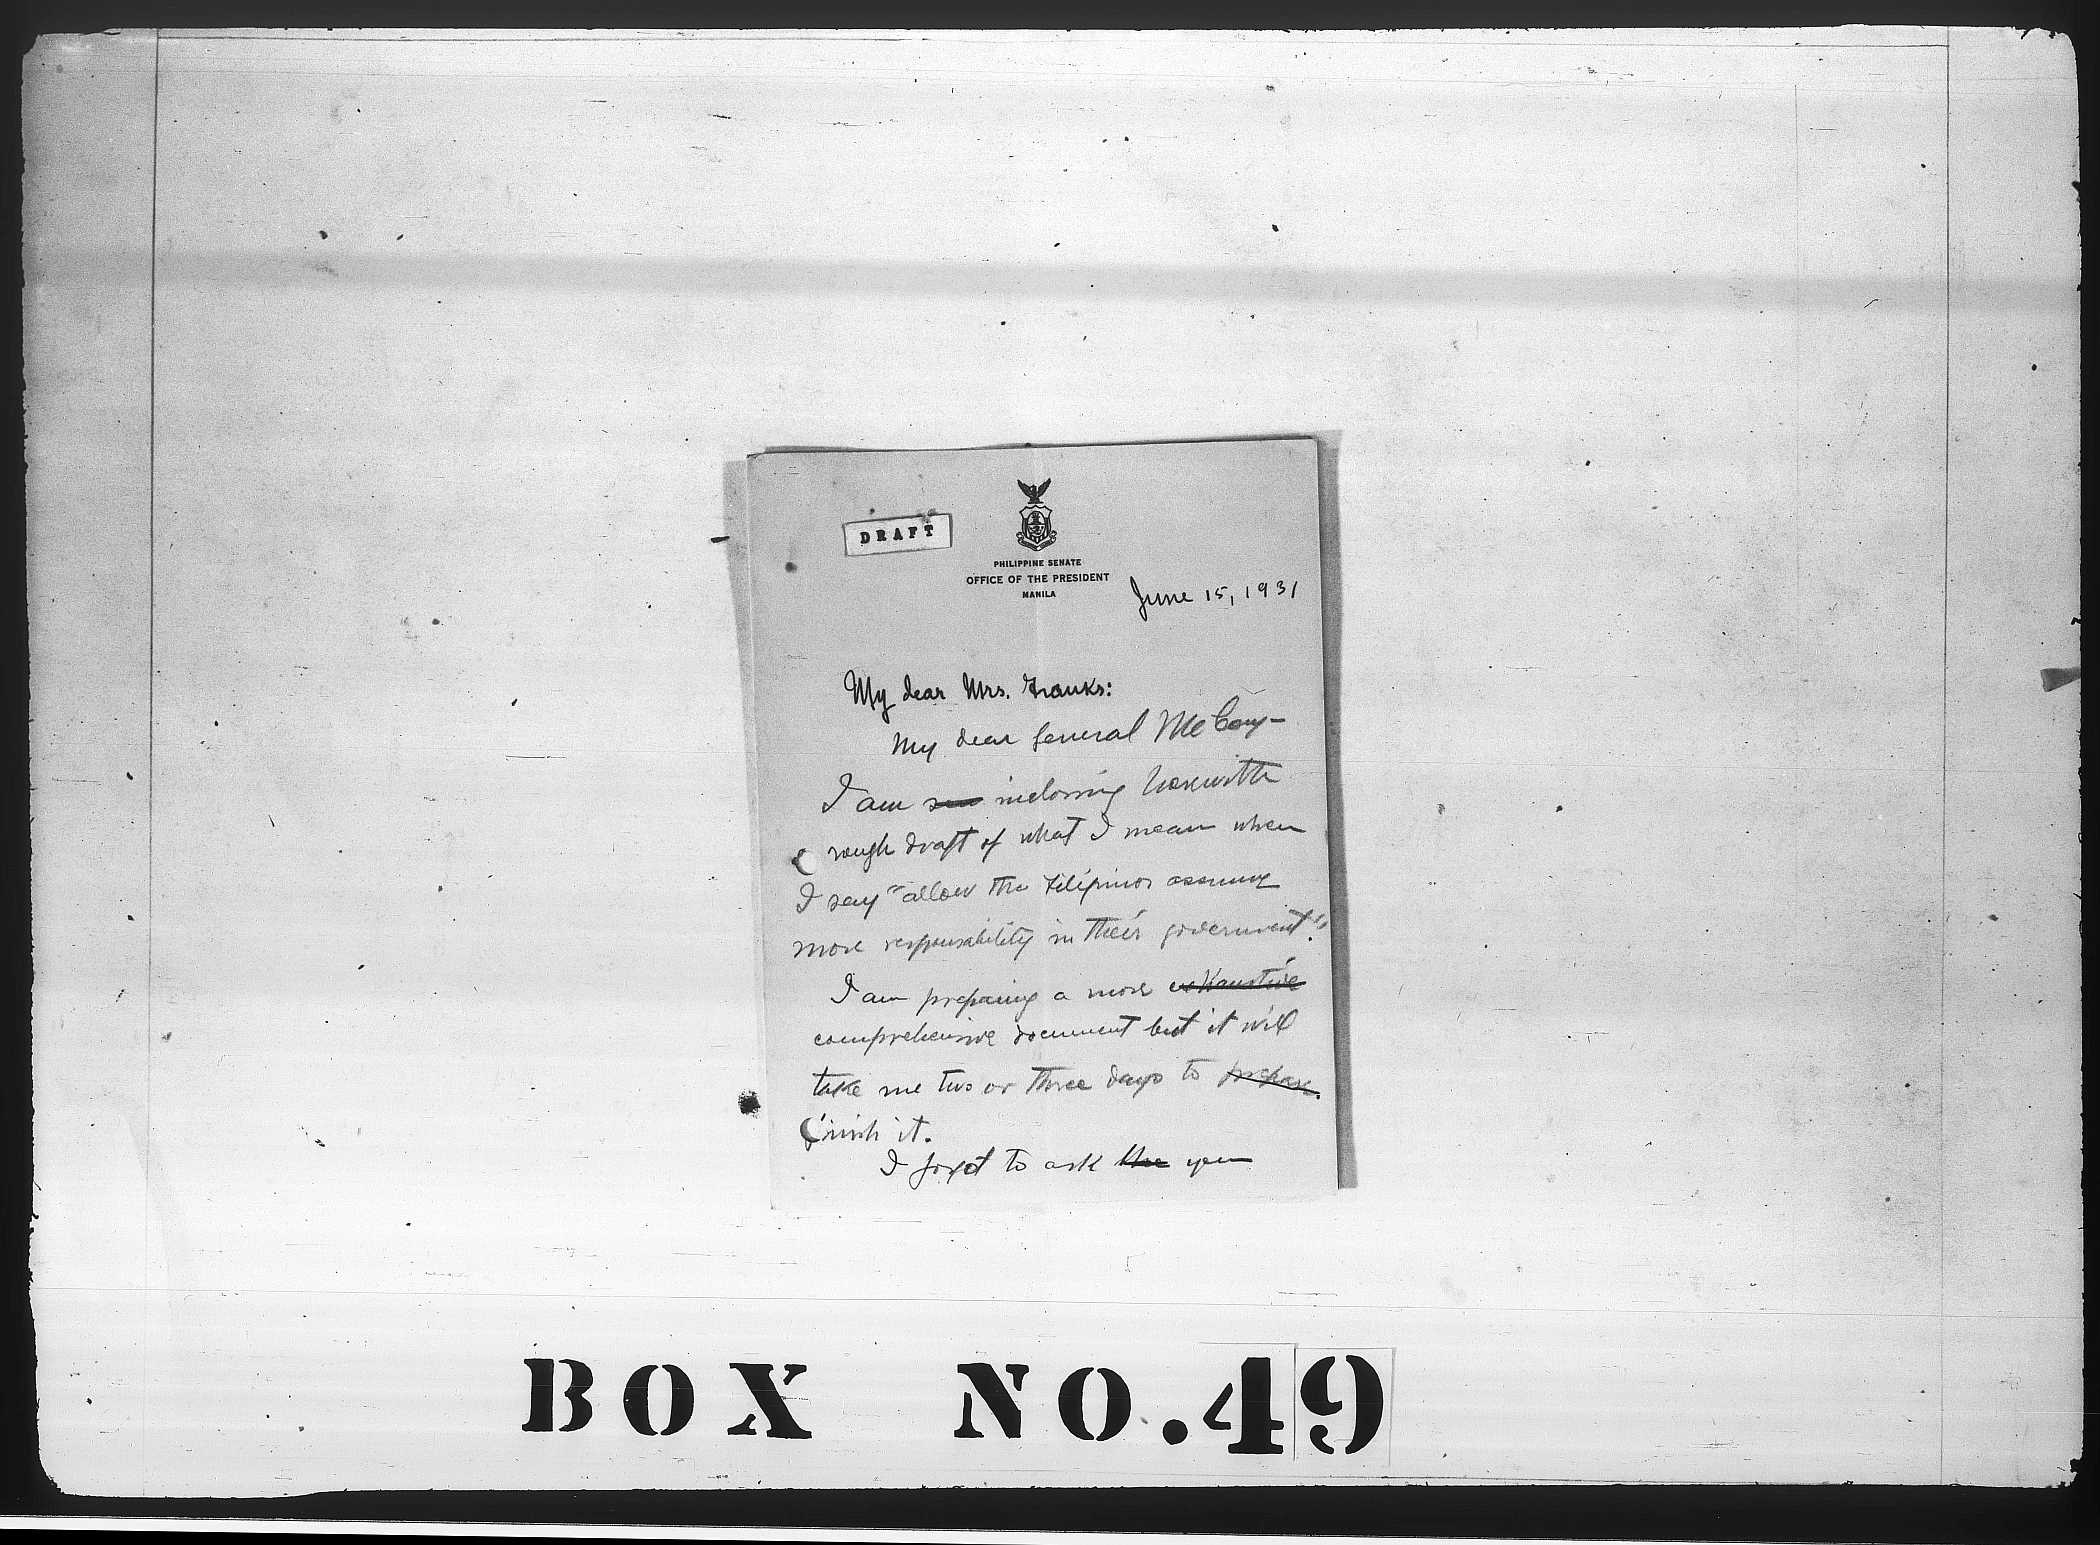 DRAFT
PHILIPPINE SENATE
OFFICE OF THE PRESIDENT
MANILA
June 15, 1931
My dear Mrs. Franks:
My dear General McCoy-
I am inclosing herewith
rough draft of what I mean when
I say "allow the Filipinos assume
more responsability in their government".
I am preparing a more exhaustive
comprehensive document but it will
take me two or three days to prepare.
finish it.
I forgot to ask the you
BOX NO. 49